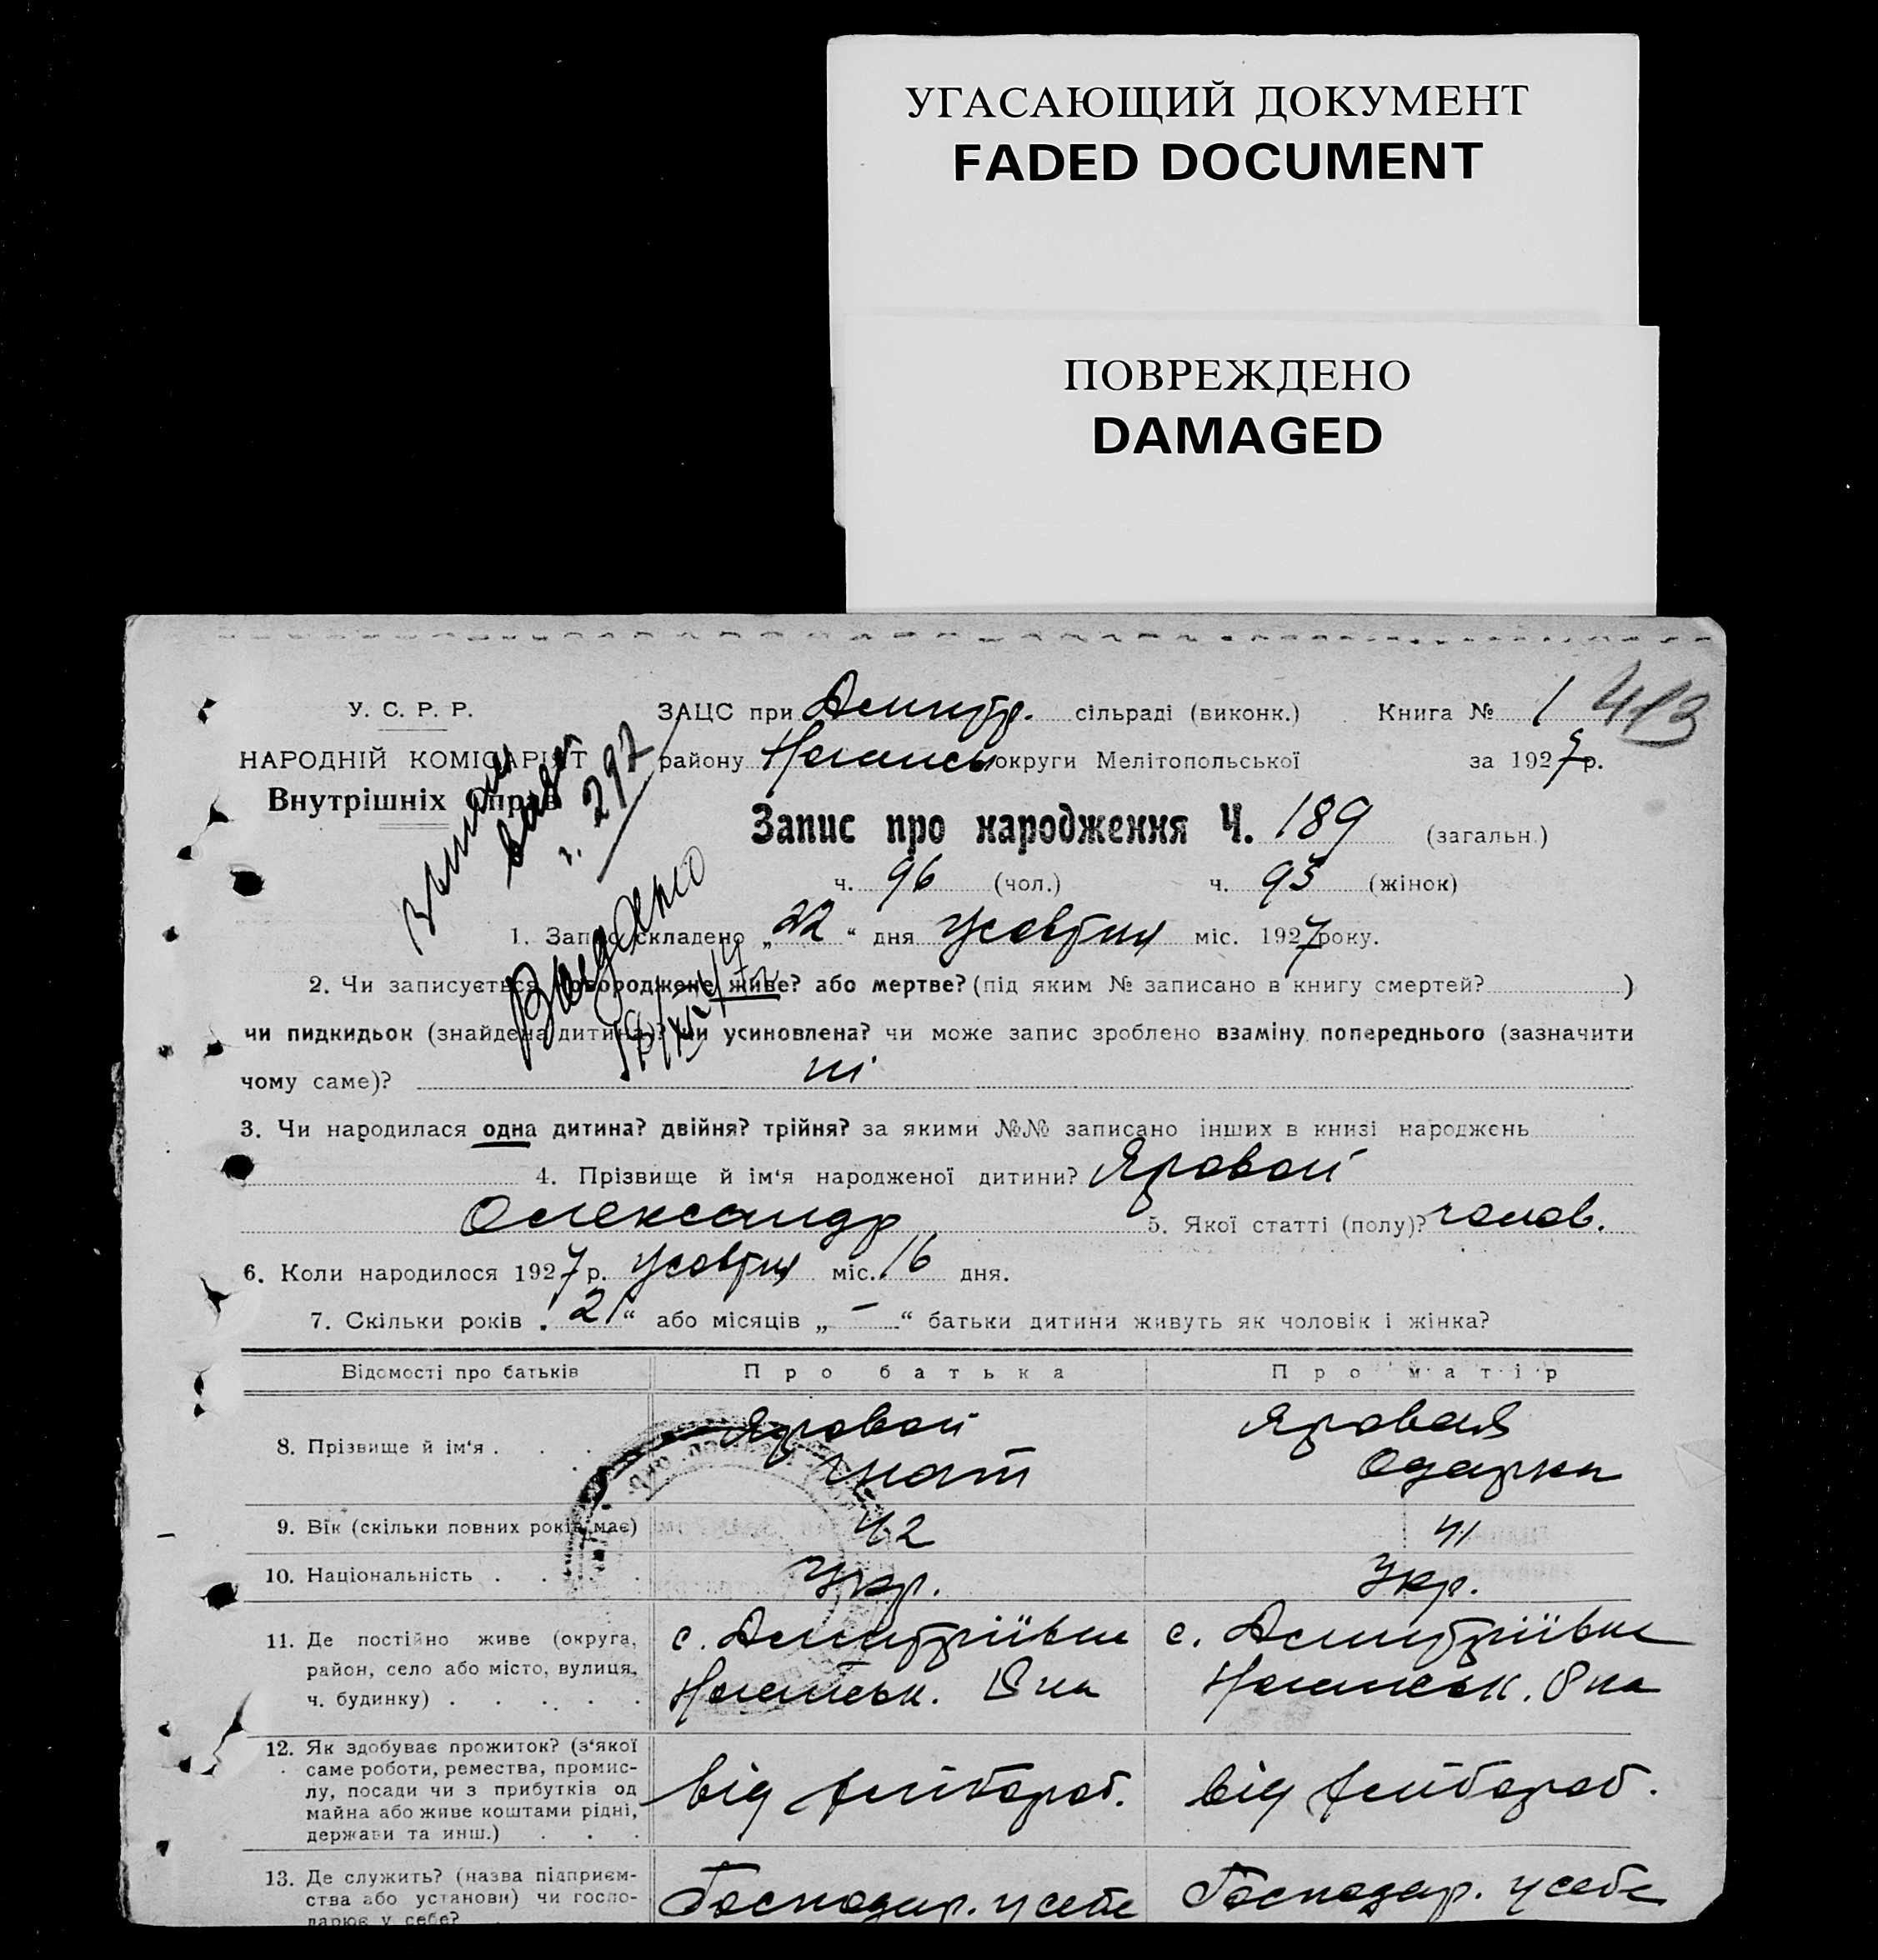 УГАСАЮЩИЙ ДОКУМЕНТ
FADED DOCUMENT
ПОВРЕЖДЕНО
DAMAGED
У. С. Р. Р.
НАРОДНІЙ КОМІСАРІЯТ
Внутрішніх Справ
ЗАЦС при Дмитр. сільраді (виконк.) Книга № 1 413
району Ногайськ округи Мелітопольської за 1927 р.
Запис про народження Ч. 189 (загальн.)
ч. 96 (чол.) ч. 93 (жінок)
ч. 297
Видано
1. Запис складено „22“ дня Жовтня міс. 1927 року.
2. Чи записується новороджене живе? або мертве? (під яким № записано в книгу смертей? )
чи пидкидьок (знайдена дитина)? чи усиновлена? чи може запис зроблено взаміну попереднього (зазначити
чому саме)? ні
3. Чи народилася одна дитина? двійня? трійня? за якими №№ записано інших в книзі народжень
4. Прізвище й ім‘я народженої дитини? Яровой
Олександр 5. Якої статті (полу)? чолов.
6. Коли народилося 1927 р. Жовтня міс. 16 дня.
7. Скільки років „21“ або місяців „ – “ батьки дитини живуть як чоловік і жінка?
Відомості про батьків Про батька Про матір
8. Прізвище й ім‘я . . . Яровой Гнат Яровая Одарка
9. Вік (скільки повних років має) 42 41
10. Національність . . . . Укр. Укр.
11. Де постійно живе (округа, район, село або місто, вулиця, ч. будинку) . . . . . с. Дмитріївка Ногайськ. Р на с. Дмитріївка Ногайськ. Р на
12. Як здобуває прожиток? (з‘якої саме роботи, ремества, промислу, посади чи з прибутків од майна або живе коштами рідні, держави та инш.) . . . від хлібороб. від хлібороб.
13. Де служить? (назва підприємства або установи) чи господарює у себе? Господар. у себе Господар. у себе